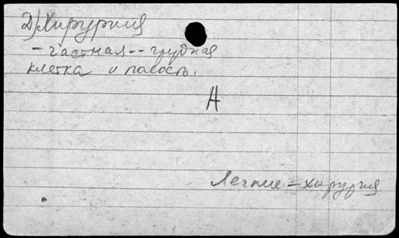 2) Хирургия
- частная -- грудная
клетка и полость.
А
Легкие - хирургия